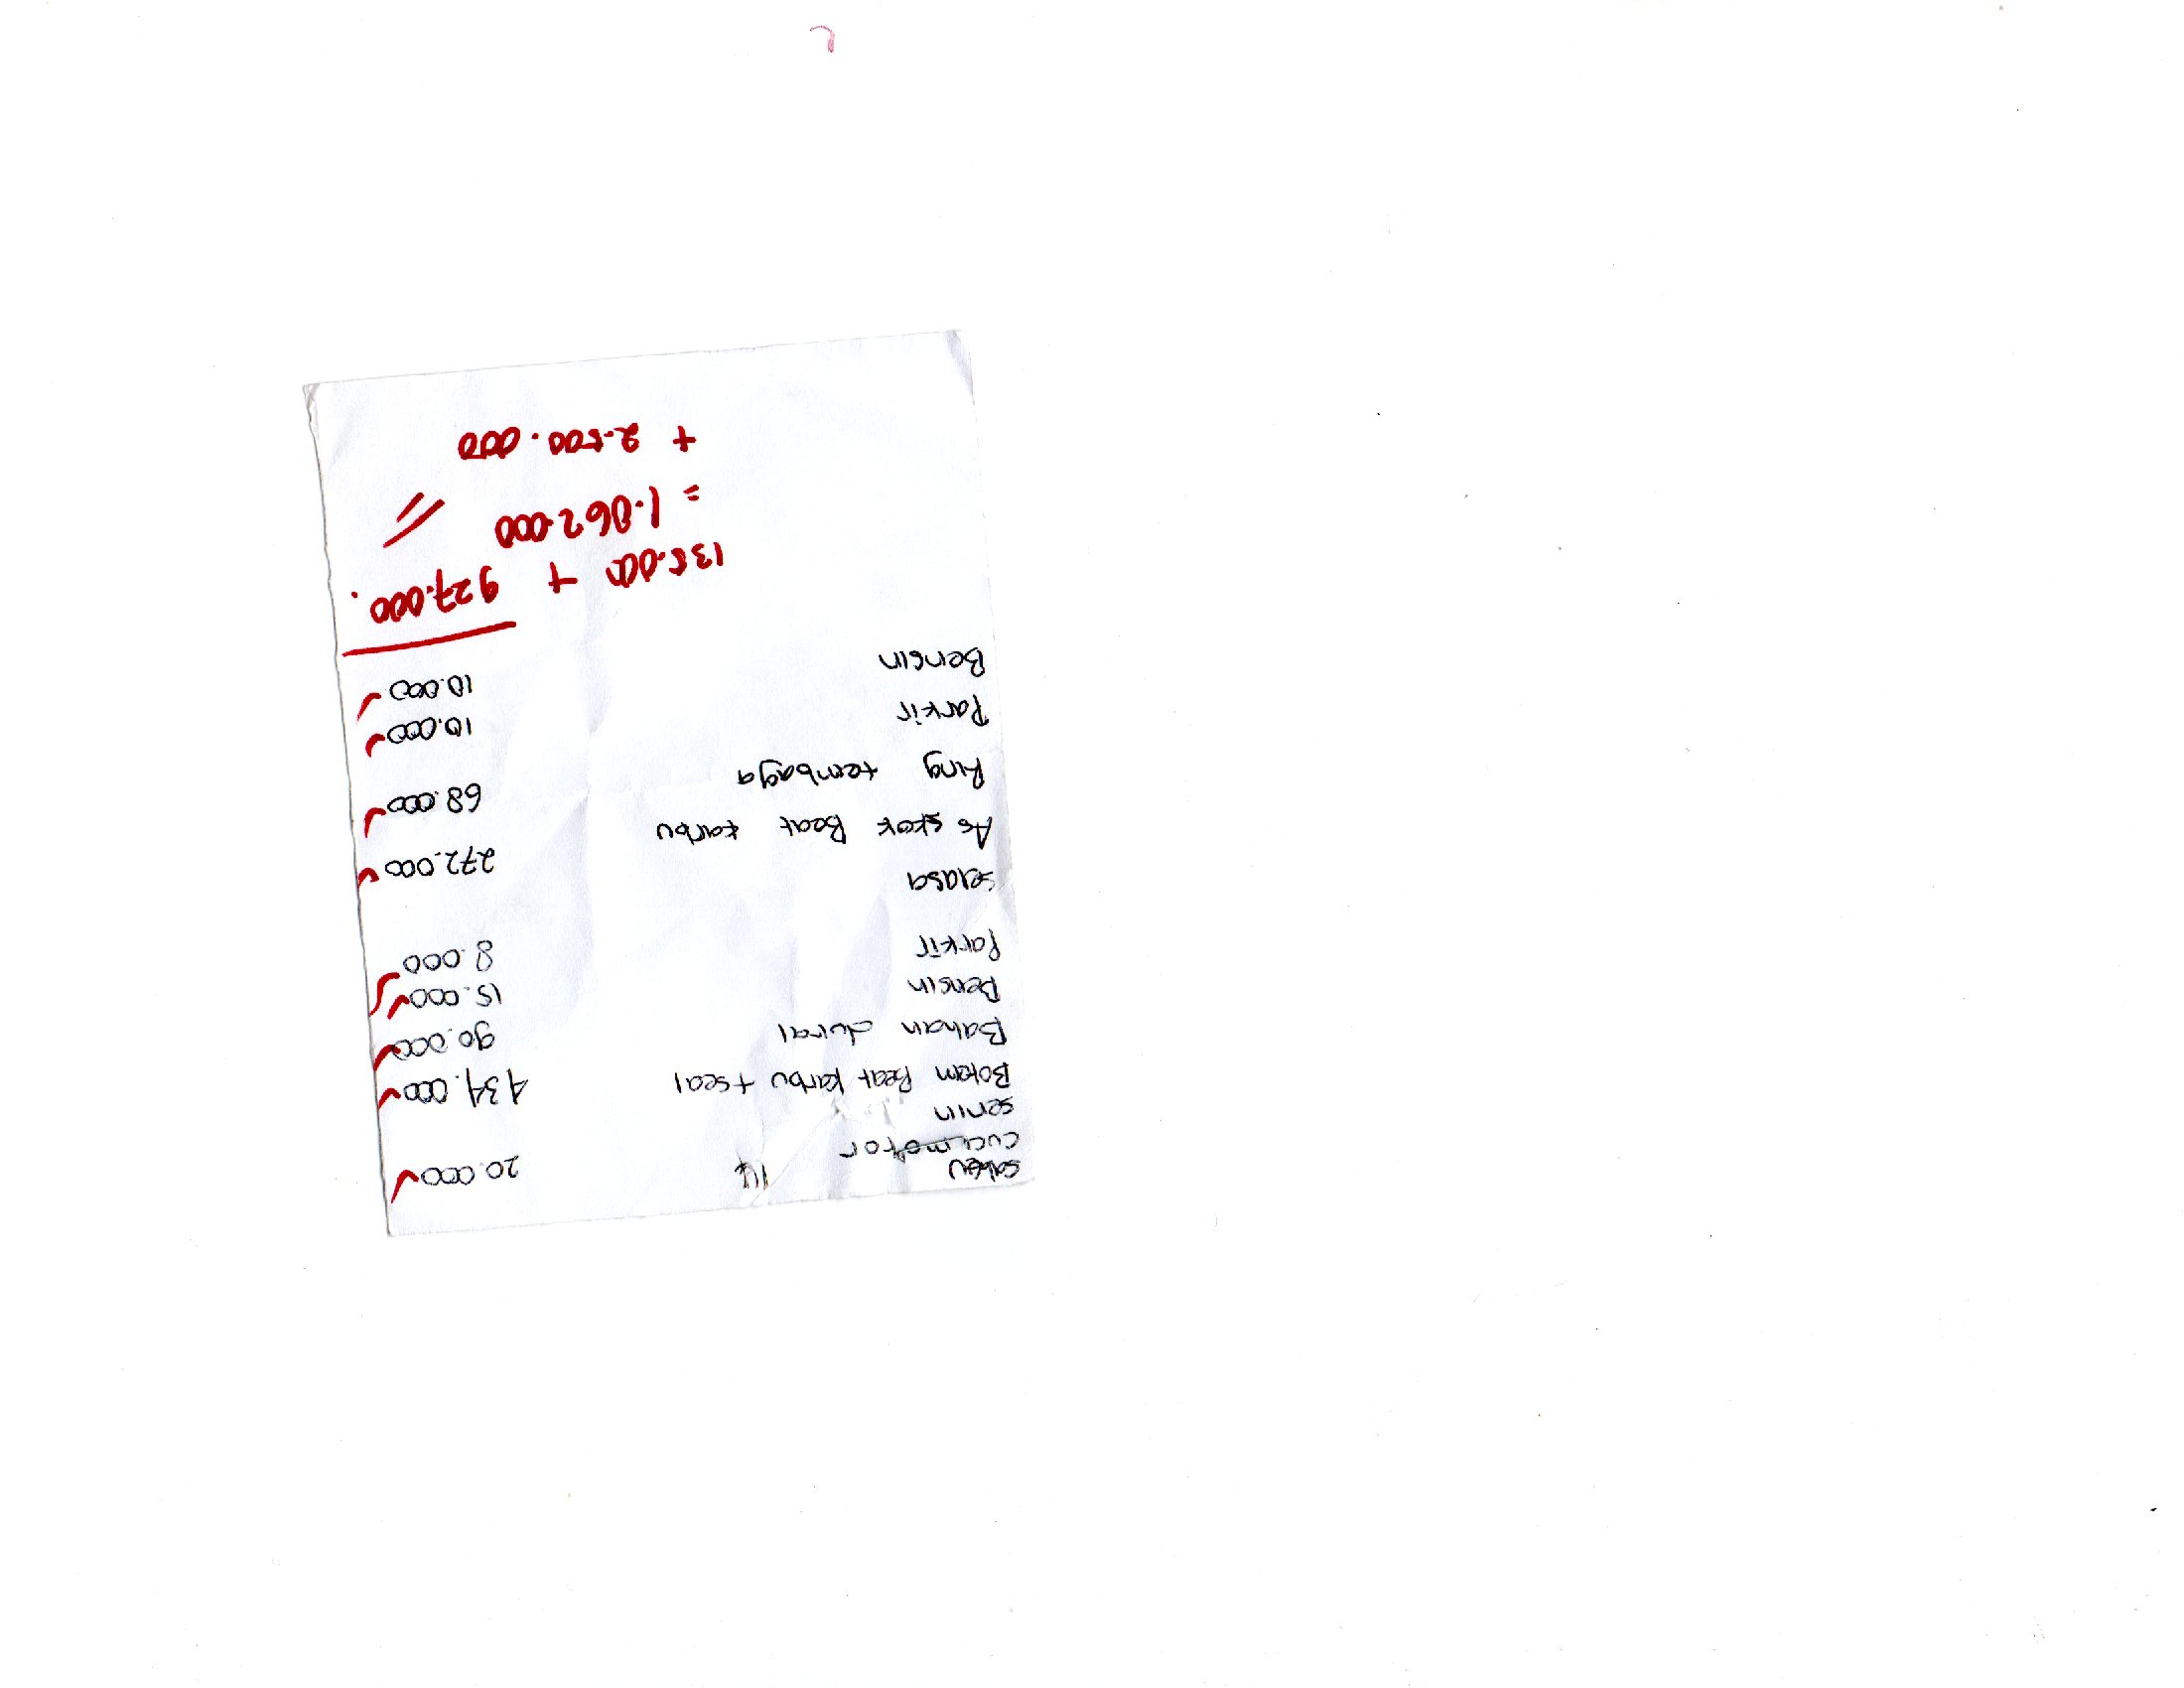 Sabtu 14
cuci motor 20.000
senin
Botom Beat karbu + seal 434.000
Bahan dural 90.000
Bensin 15.000
Parkir 8.000
selasa
As skok Beat karbu 272.000
Ring tembaga 68.000
Parkir 10.000
Bensin 10.000
135.000 + 927.000.
= 1.062.000
+ 2.500.000